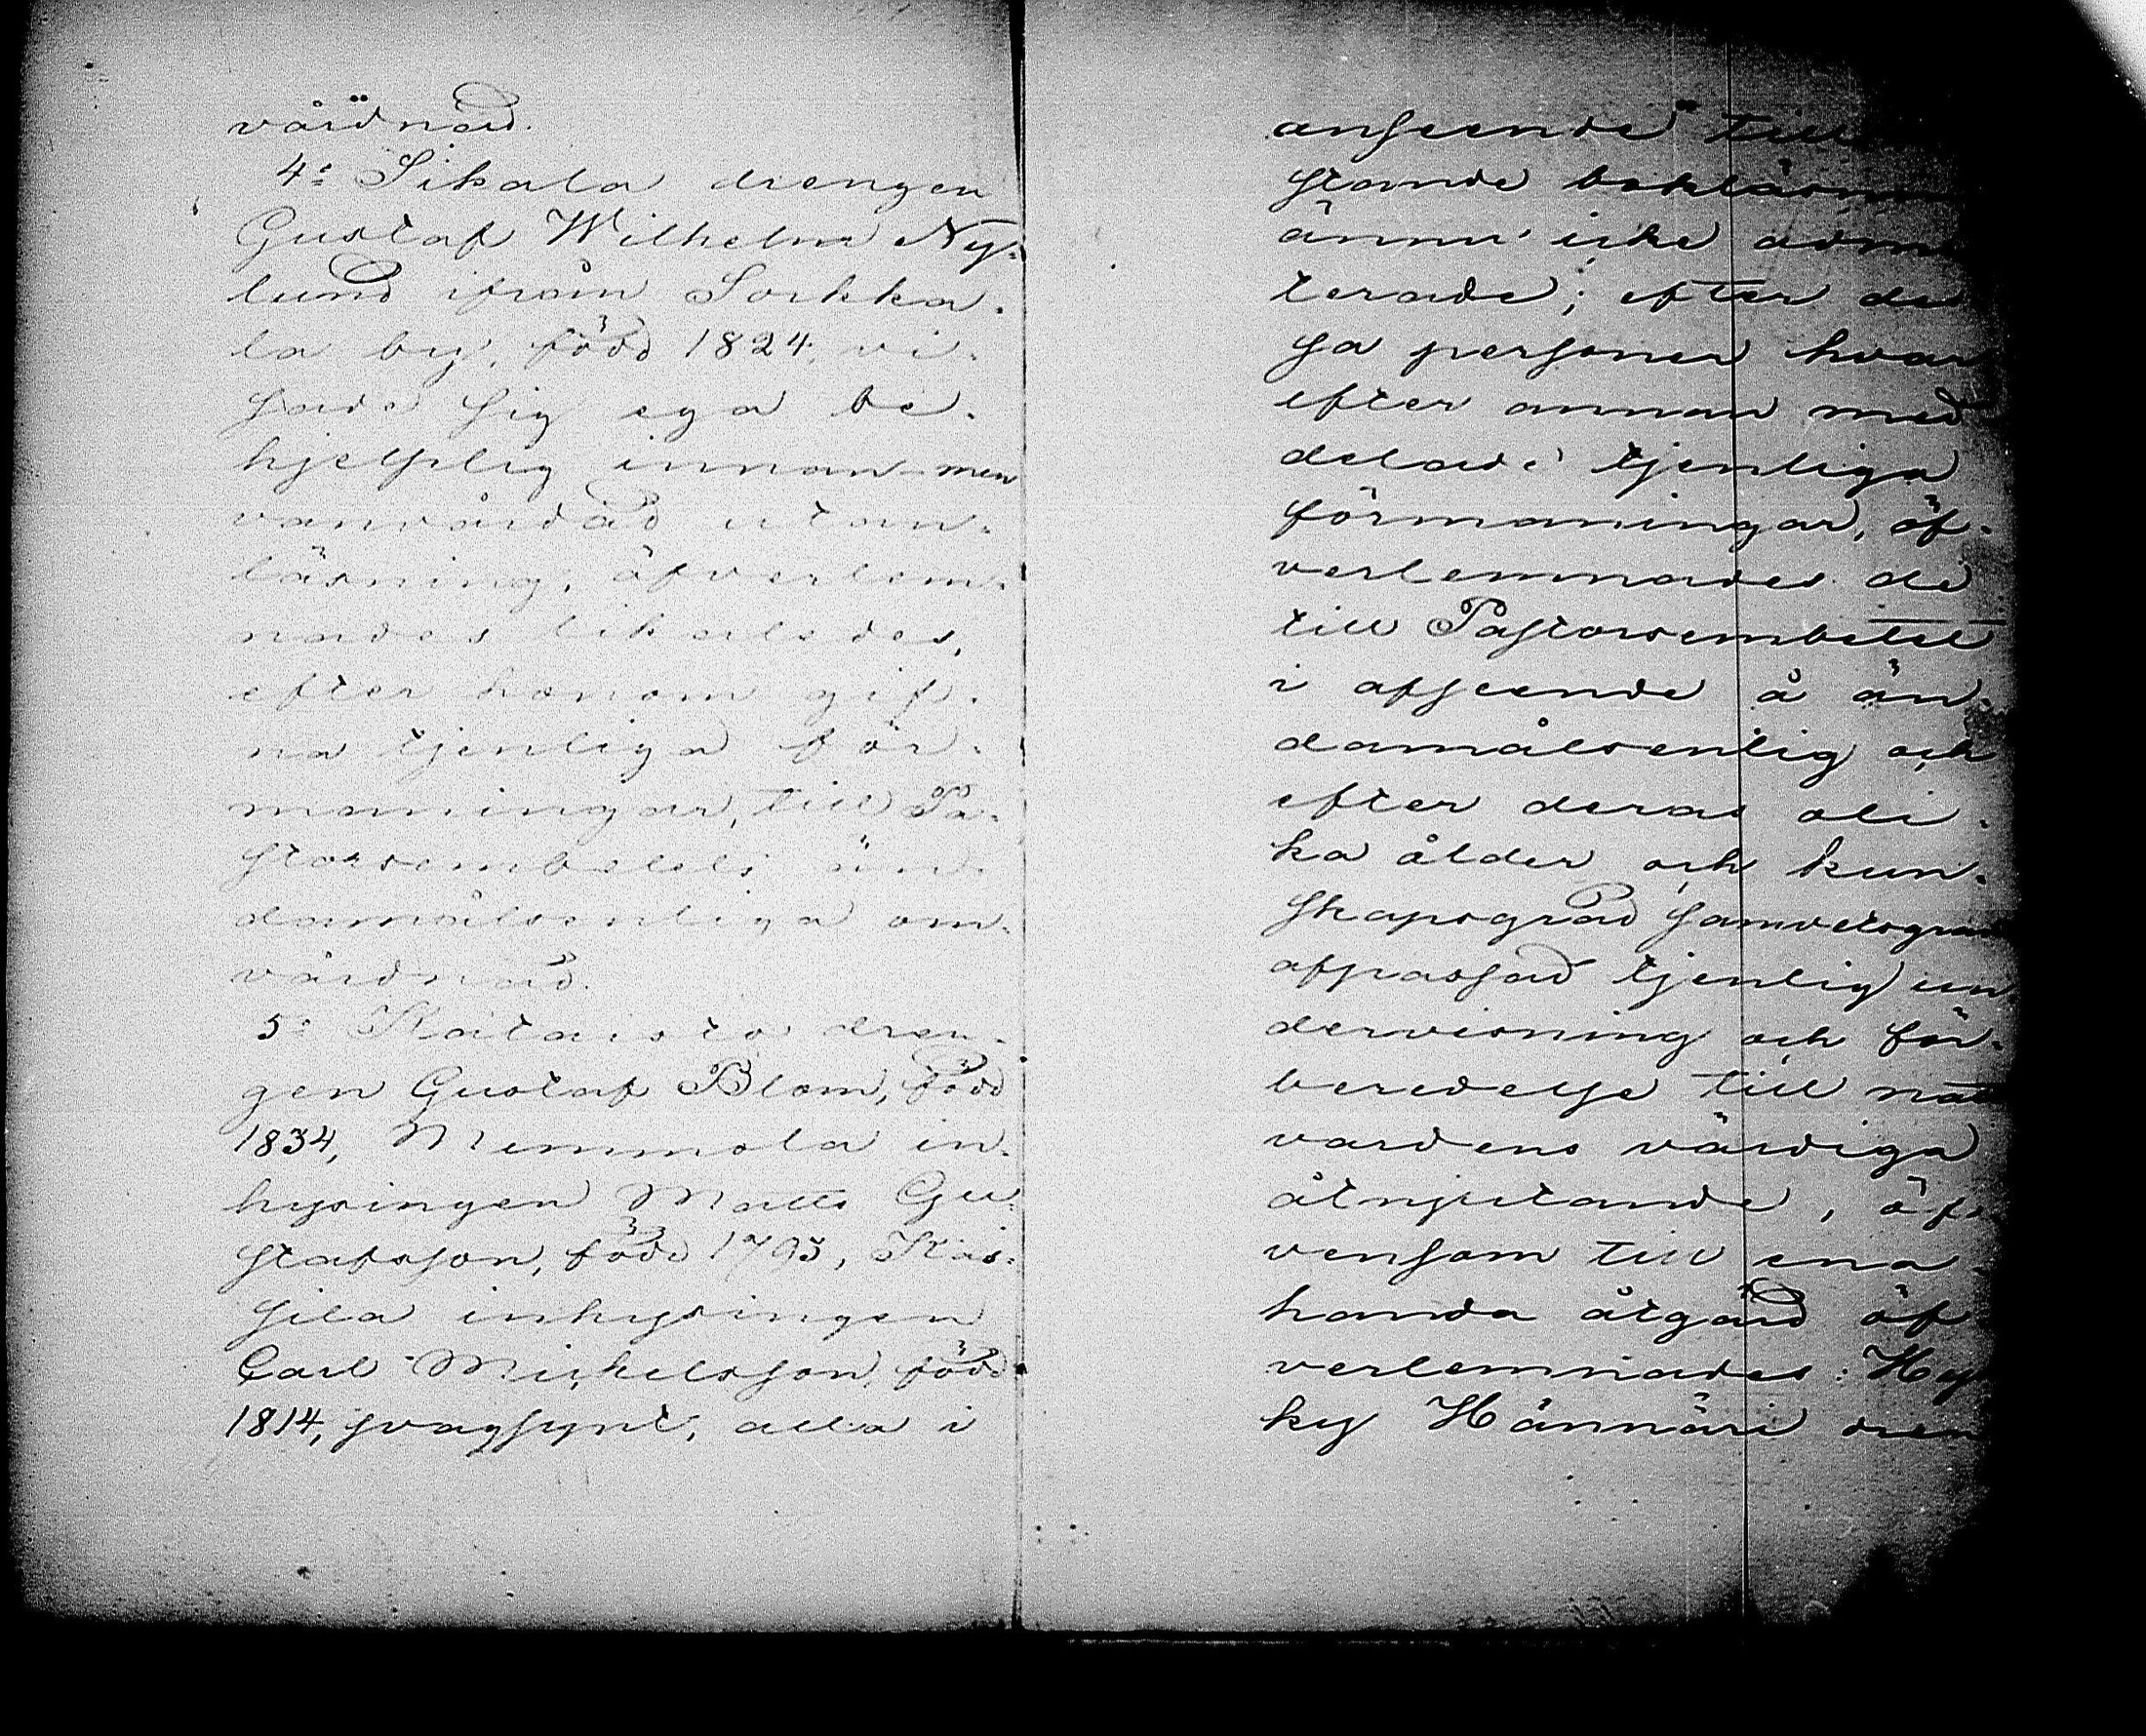 vårdnad.
4:o Sikala drengen
Gustaf Wilhelm Ny-
lund ifrån Sorkka-
la by, född 1824, vi-
sade sig ega be-
hjelplig innan- men
vanvårdad utan-
läsning, öfverlem-
nades likaledes,
efter honom gif-
na tjenliga för-
maningar, till Pa-
storsembetets än-
damålsenliga om-
vårdnad.
5:o Kataisto dren-
gen Gustaf Blom, född
1834, Memmola in-
hysingen Matts Gu-
stafsson, född 1793, Kas-
sila inhysingen
Carl Michelsson, född
1814, svagsynt, alla i
anseende till
stande
ännu icke
terade; efter des-
sa personer hvar
efter annan med-
delade tjenliga
förmaningar, öf-
verlemnades de
till Pastorsembetet
i afseende å än-
damålsenlig och
efter deras oli-
ka ålder och kun-
skapsgrad samvetsgrant
afpassad tjenlig un-
dervisning och för-
beredelse till natt-
vardens värdiga
åtnjutande, äf-
vensom till ena-
handa åtgärd öf-
verlemnades: Hy-
ky Hännäri dren-